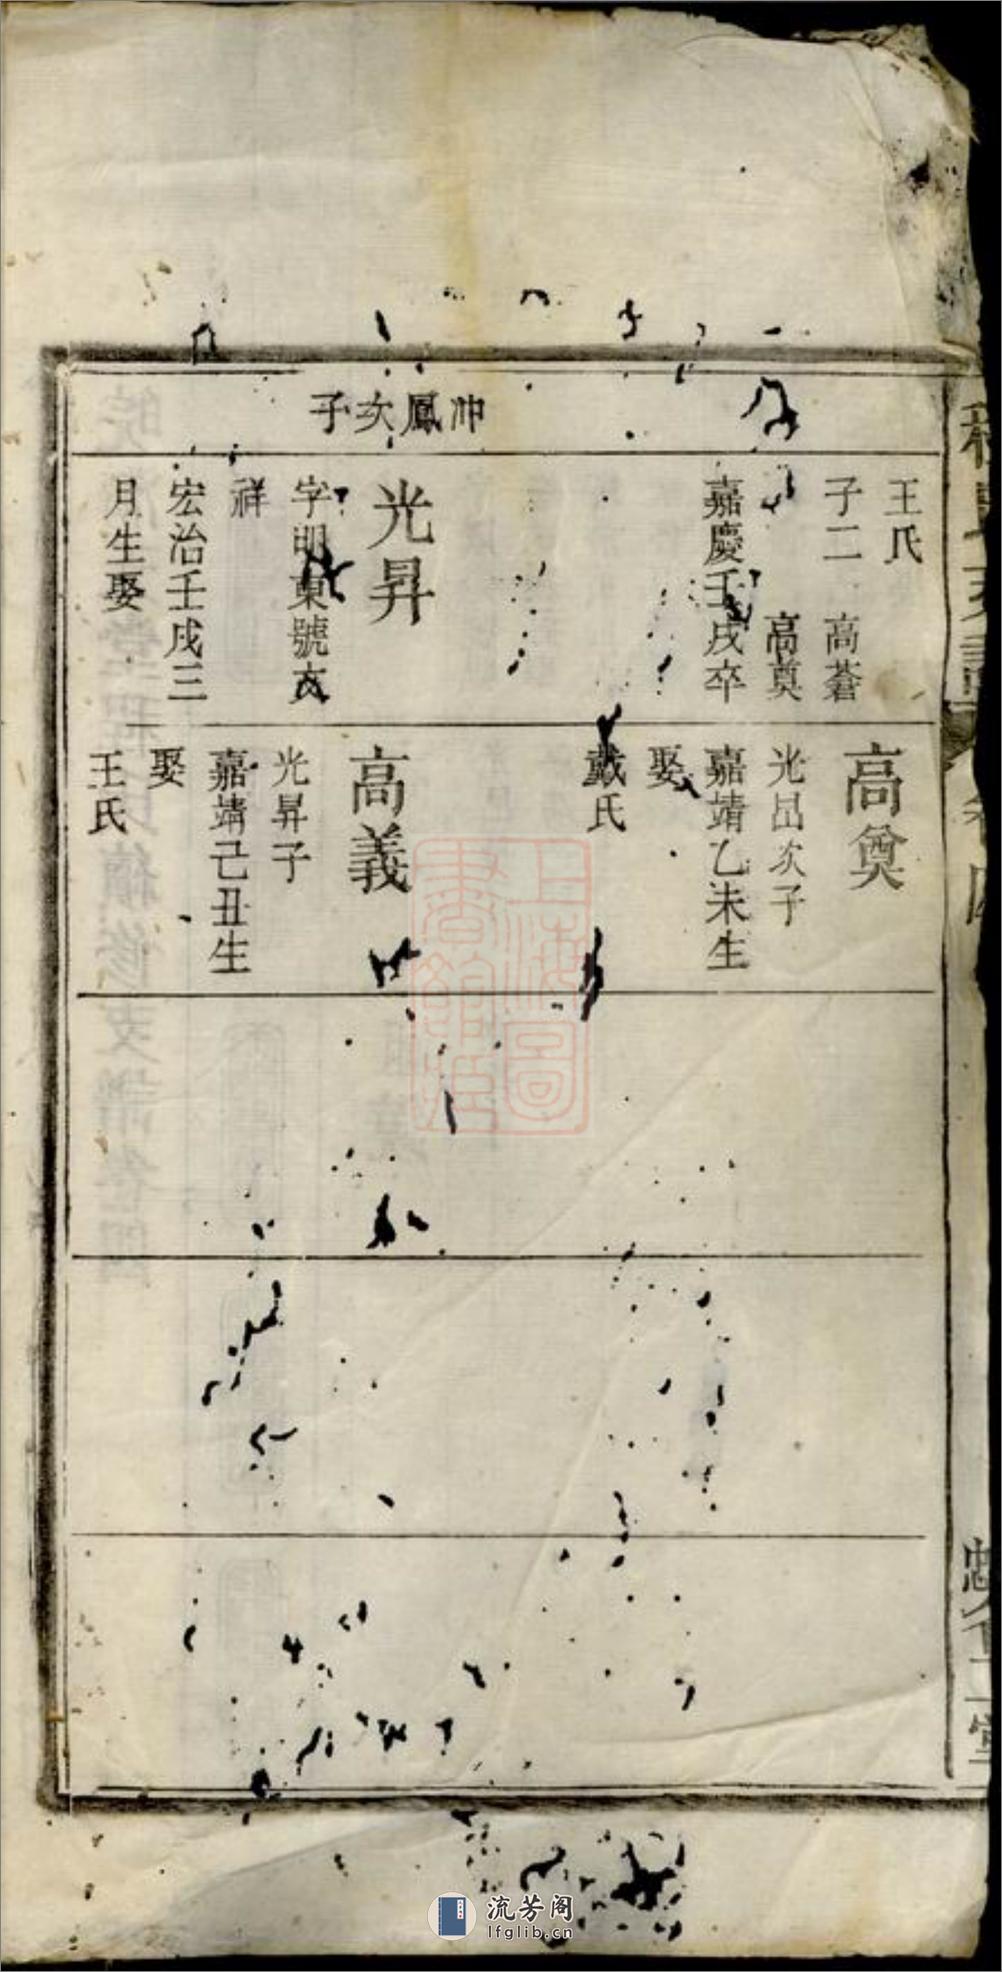 冲鳳次子
王氏
子二　高蒼
高奠
嘉慶壬戌卒
光昇
字明東號友
祥
宏治壬戌三
月生娶
高奠
光昌次子
嘉靖乙未生
娶
戴氏
高義
光昇子
嘉靖己丑生
娶
王氏
上海圖書館藏
流芳阁
lfglib.cn